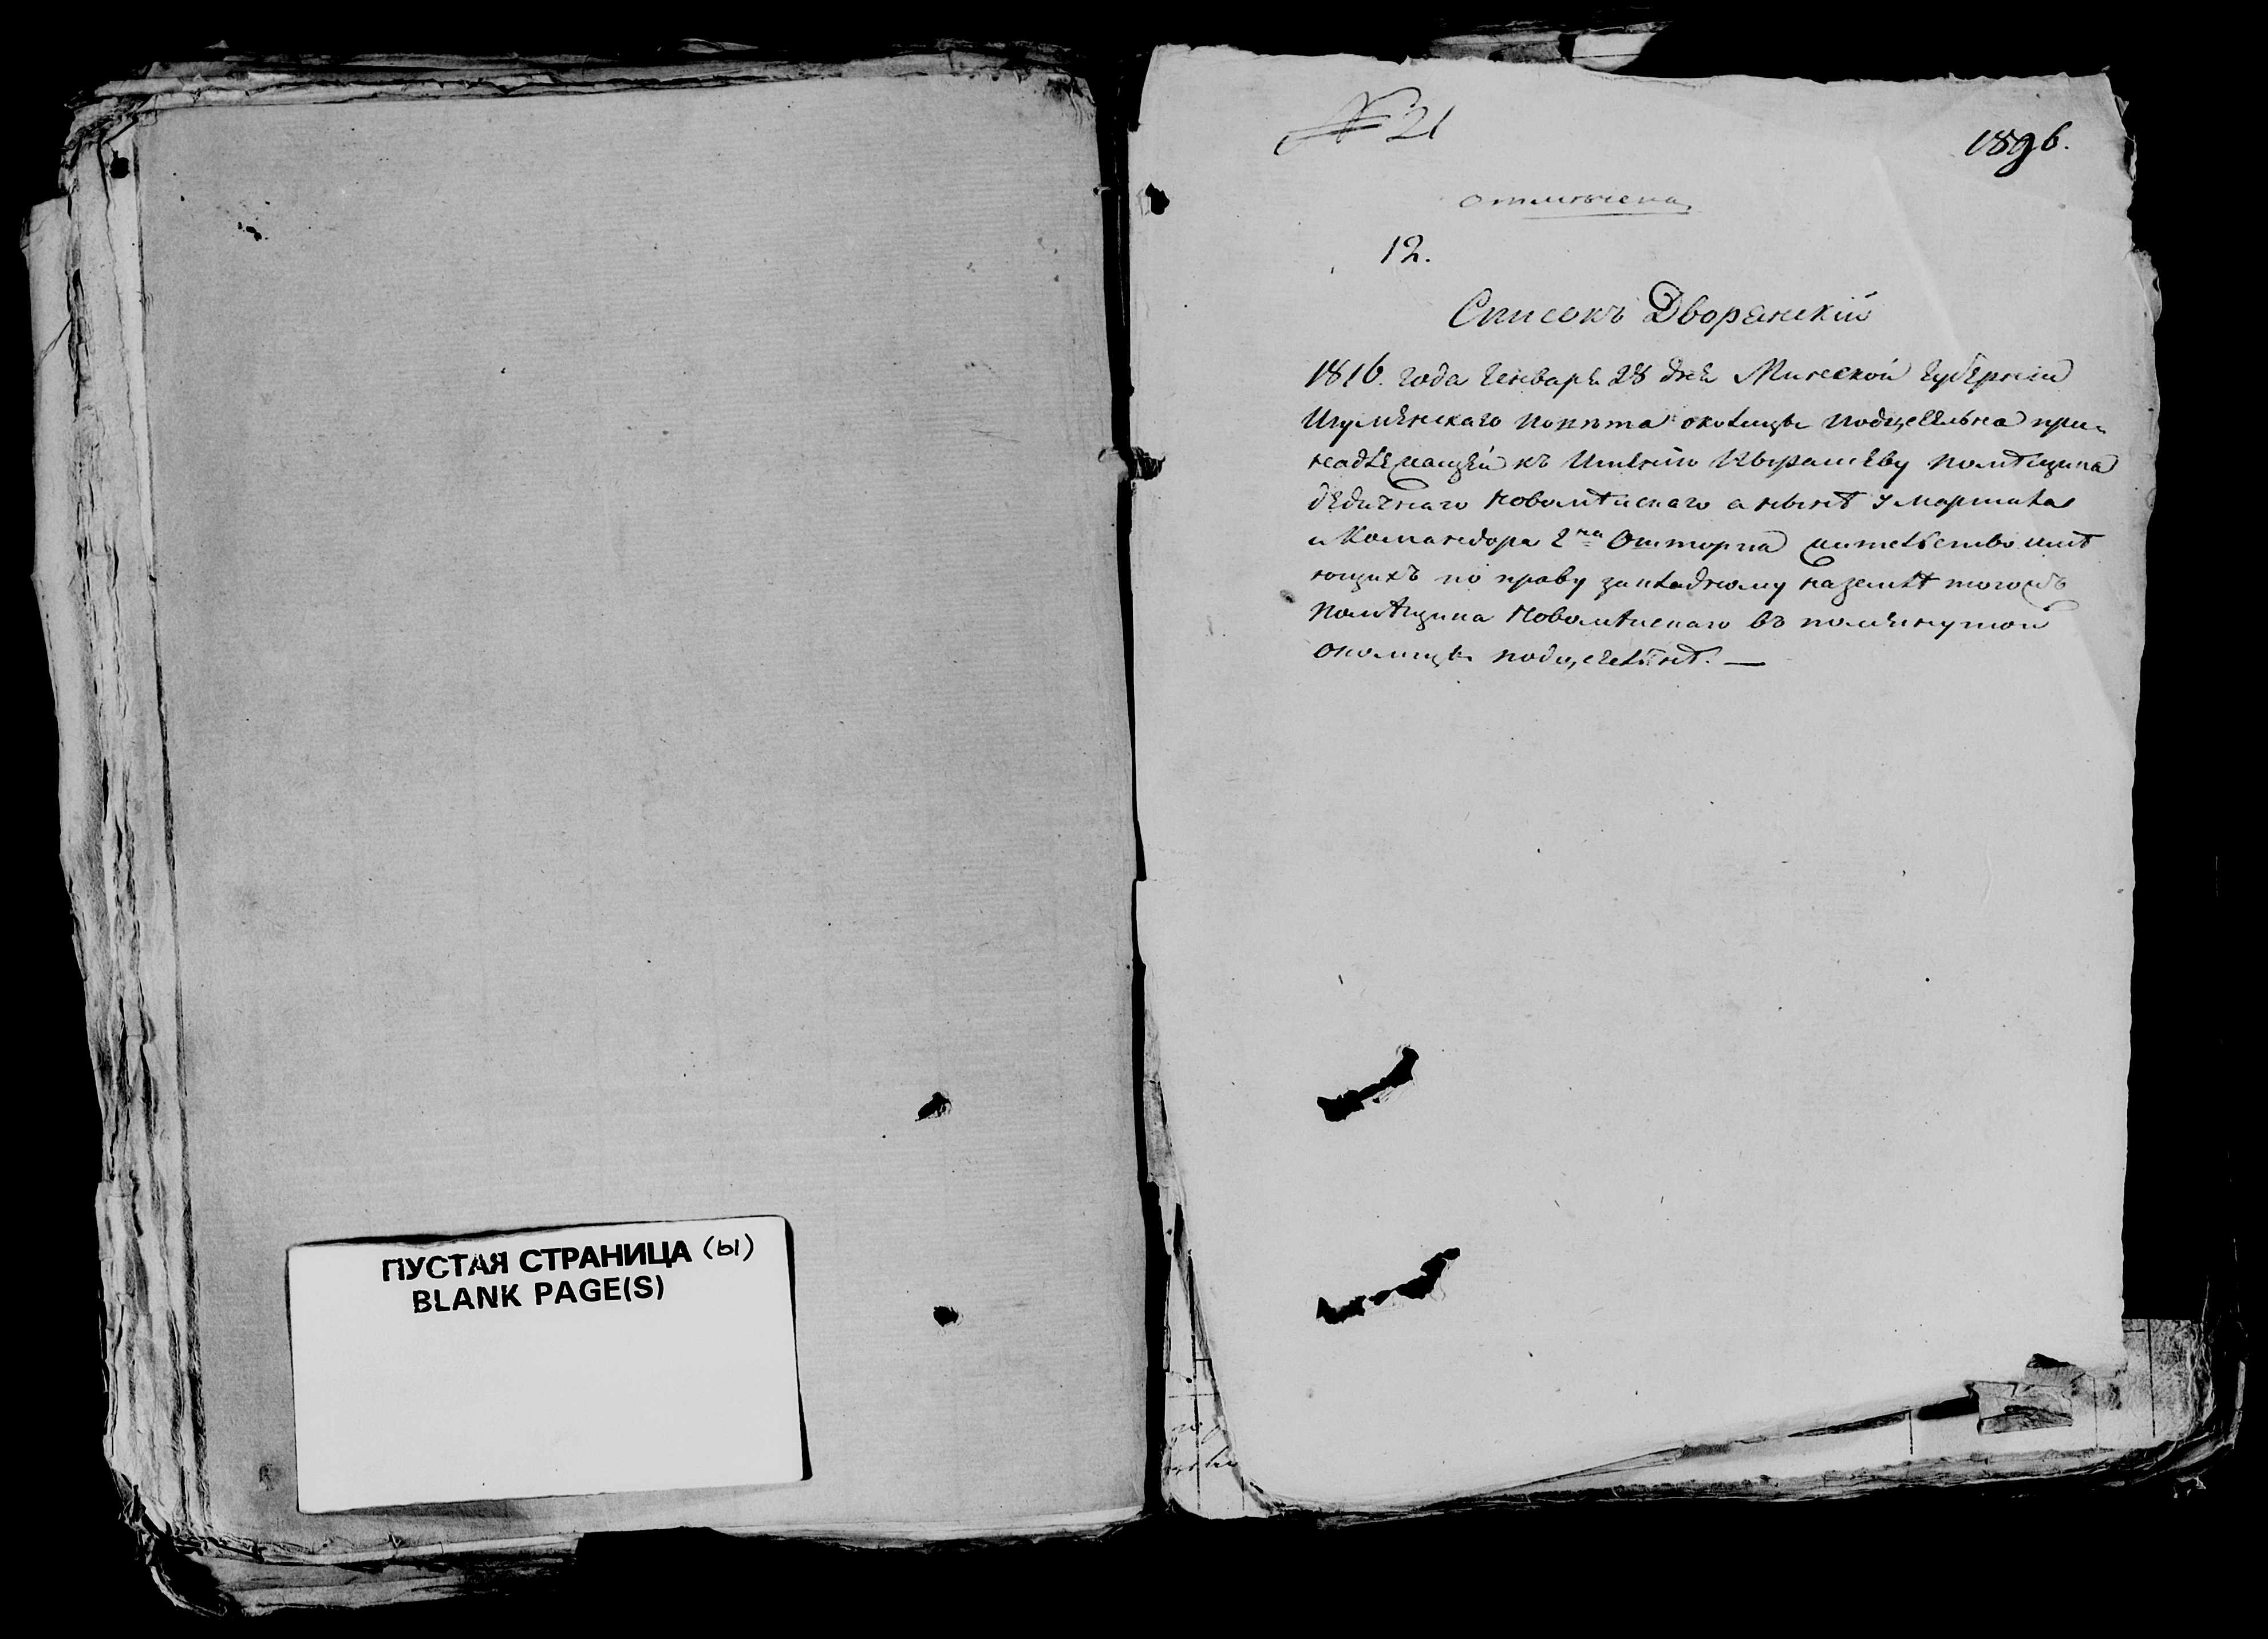 ПУСТАЯ СТРАНИЦА (Ы)
BLANK PAGE(S)
№ 21
1896.
отмечена
12.
Списокъ Дворянскій
1816. года Генваря 28 дня Минской губерніи
Игуменскаго повѣта околицы Подцесельна при-
надлежащей къ Имѣнію помѣщика
дѣдичнаго Новомѣйскаго а нынѣ у Маршала
и Командора жительство имѣ
ющихъ по праву закладному на землѣ тогожъ
помѣщика Новомѣйскаго въ помянутой
околицы